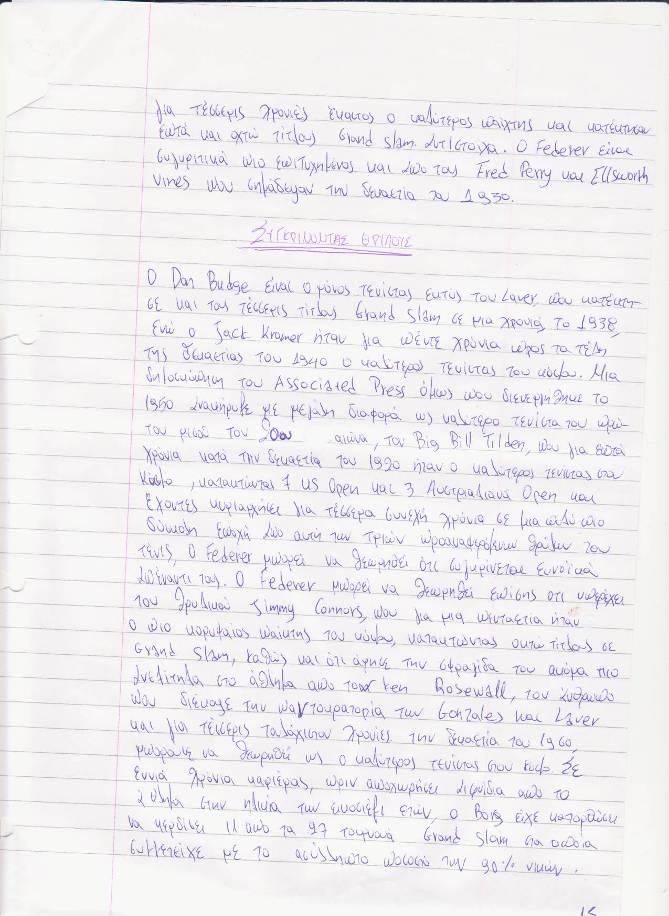 για τέσσερις χρονιές έκαστος ο καλύτερος παίχτης και κατέκτησαν
εφτά και οχτώ τίτλους Grand Slam αντίστοιχα. Ο Federer είναι
συγκριτικά πιο επιτυχημένος και από τους Fred Perry και Ellsworth
Vines που σημάδεψαν την δεκαετία του 1930.
ΣΥΓΚΡΙΝΟΝΤΑΣ ΘΡΥΛΟΥΣ
Ο Don Budge είναι ο μόνος τενίστας εκτός του Laver που κατέκτη-
σε και τους τέσσερις τίτλους Grand Slam σε μια χρονιά, το 1938,
ενώ ο Jack Kramer ήταν για πέντε χρόνια μέχρι τα τέλη
της δεκαετίας του 1940 ο καλύτερος τενίστας του κόσμου. Μια
δημοσκόπηση του Associated Press όμως που διενεργήθηκε το
1950 ανακήρυξε με μεγάλη διαφορά ως καλύτερο τενίστα του πρώ-
του μισού του 20ου αιώνα, τον Big Bill Tilden, που για εφτά
χρόνια κατά την δεκαετία του 1920 ήταν ο καλύτερος τενίστας στον
κόσμο, κατακτώντας 7 US Open και 3 Αυστραλιανά Open και
Έχοντας κυριαρχήσει για τέσσερα συνεχή χρόνια σε μια πολύ πιο
δύσκολη εποχή από αυτή των τριών προαναφερόμενων θρύλων του
τένις, ο Federer μπορεί να θεωρηθεί ότι συγκρίνεται ευνοϊκά
απέναντι τους. Ο Federer μπορεί να θεωρηθεί επίσης ότι υπερέχει
του θρυλικού Jimmy Connors, που για μια πενταετία ήταν
ο πιο κορυφαίος παίκτης του κόσμου, κατακτώντας οκτώ τίτλους σε
Grand Slam, καθώς και ότι άφησε την σφραγίδα του ακόμα πιο
ανεξίτηλα στο άθλημα από τον Ken Rosewall, τον άνθρωπο
που διέκοψε την παντοκρατορία των Gonzales και Laver
και για τέσσερις τουλάχιστον χρονιές την δεκαετία του 1960,
μπορούσε να θεωρηθεί ως ο καλύτερος τενίστας στον κόσμο. Σε
εννιά χρόνια καριέρας, πριν αποχωρήσει αιφνίδια από το
άθλημα στην ηλικία των εικοσιέξι ετών, ο Borg είχε κατορθώσει
να κερδίσει 11 από τα 27 τουρνουά Grand Slam στα οποία
συμμετείχε με το ασύλληπτο ποσοστό των 90% νικών.